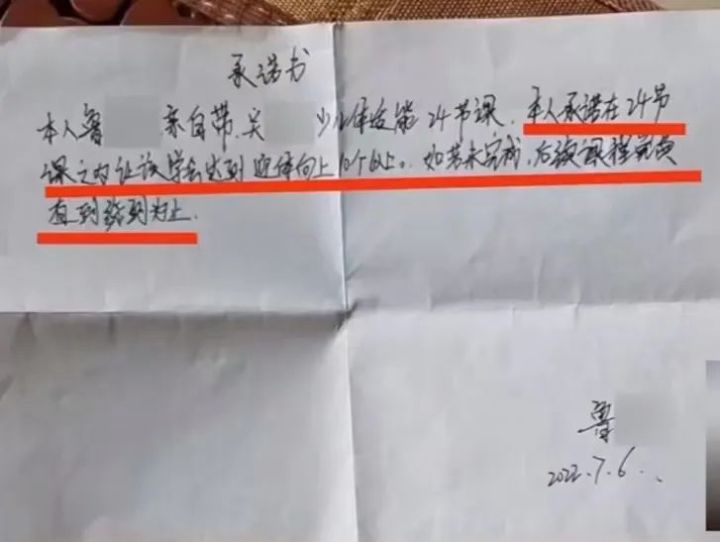 承诺书
本人鲁 亲自带关 少儿体技能24节课.本人承诺在24节
课之内让该学会达到 向上10个以上。如若未完成,后续课程免费
直到 到为止.
鲁
2022.7.6..